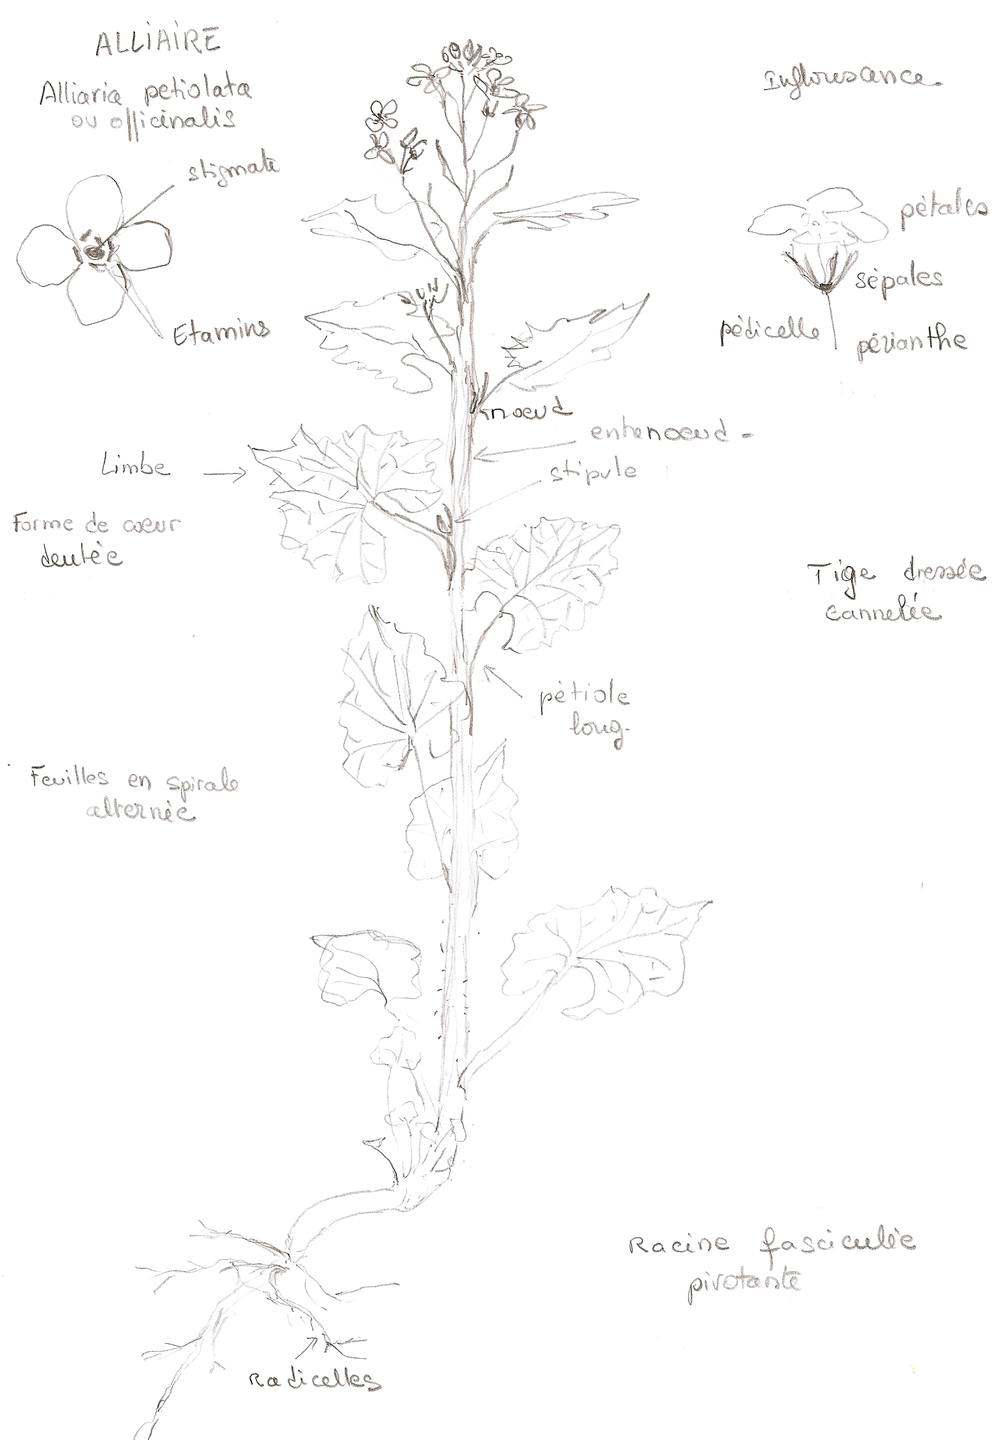 ALLiAiRE
Alliaria petiolata
ou officinalis
stigmate
Etamins
Inflorusance.
pétales
sépales
pédicelle
périanthe
noeud
entrenoeud
stipule
Limbe
Forme de coeur
dentée
Tige dressée
cannelée
pétiole
long.
Feuilles en spirale
alternée
Racine fasciculée
pivotante
Radicelles